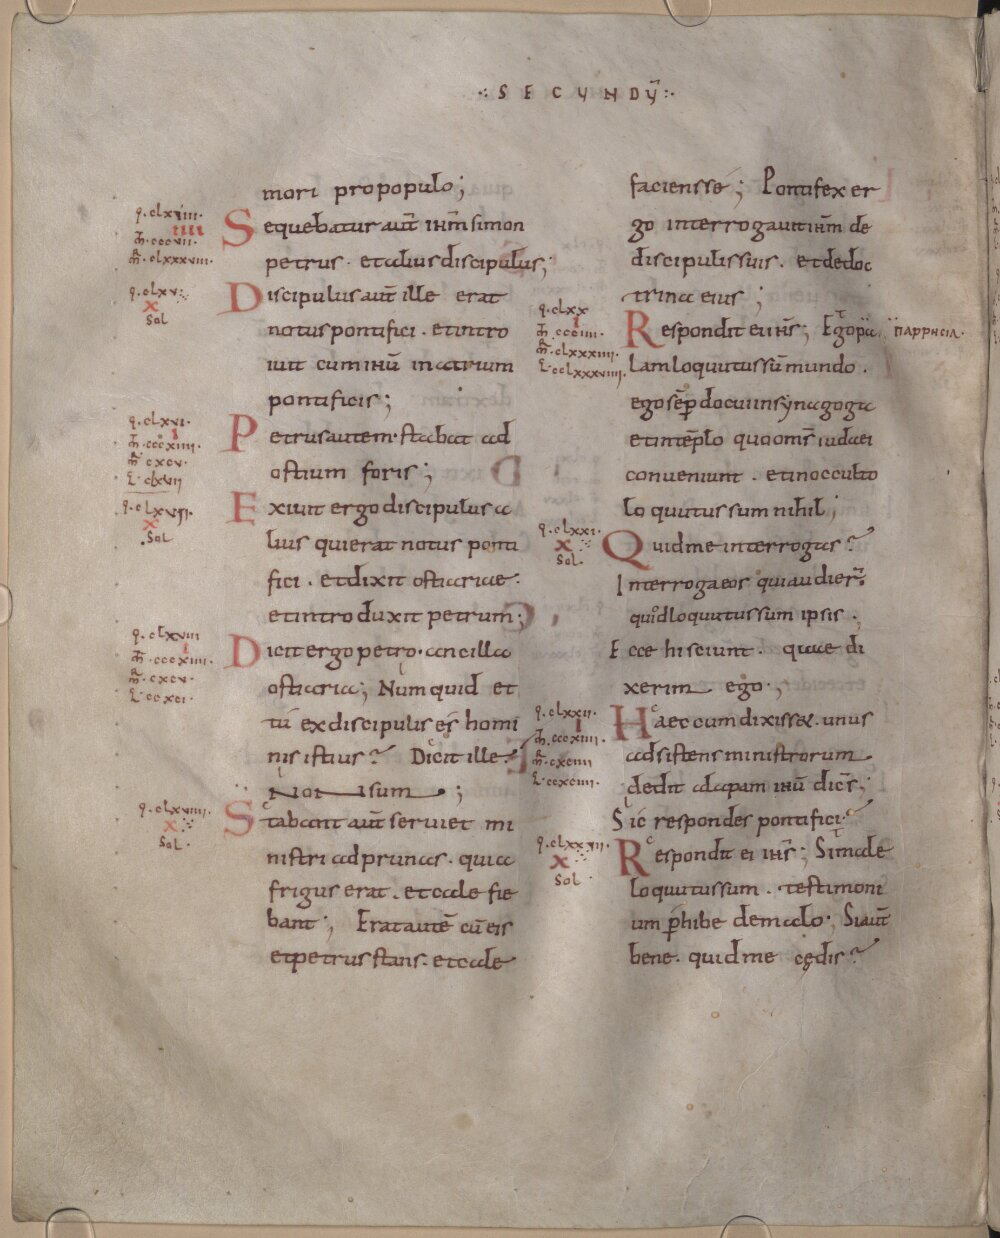 ·: SECUND�ū :·
mori pro populo;
q. clxiiii.
iiii
m̄. cccvii.
m̄r. clxxxviii.
Sequebatur aut̄ ihm̄ simon
petrus. et alius discipulus;
q. clxv:
x
Sol
Discipulus aut̄ ille erat
notus pontifici. et intro
iuit cum ihū in atrium
pontificis;
q. clxvi.
i
m̄. cccxiiii.
m̄r cxcv.
L. clxvii
Petrus autem. stabat ad
ostium foris;
q. clxvii.
x
Sol
Exiuit ergo discipulus a
lius qui erat notus ponti
fici. et dixit ostiariae.
et introduxit petrum;
q. clxviii
i
m̄. cccxiiii.
m̄r. cxcv.
L. ccxci.
Dicit ergo petro. ancilla
ostiaria; Numquid et
tū ex discipulis es homi
nis istius? Dicit ille.
Non sum;
q. clxviiii.
x
Sol.
Stabant aut̄ serui et mi
nistri ad prunas. quia
frigus erat. et cale fie
bant; Erat autē cū eis
et petrus stans. et cale
faciens se; Pontifex er
go interrogauit ihm̄ de
discipulis suis. et de doc
trina eius;
q. clxx
i
m̄. ccciiii.
m̄r. clxxxiiii.
L. cclxxxviiii.
Respondit ei ihs̄; Ego pa ΠΑΡΡΗCΙΑ.
lam loquutus sū mundo.
ego sēp docui in synagoga
et in tēplo quo oms̄ iudaei
conueniunt. et in occulto
loquutus sum nihil;
q. clxxi.
x
Sol.
Quid me interrogas?
Interroga eos qui audier̄.
quid loquutus sum ipsis.
Ecce hi sciunt. quae di
xerim ego.;
q. clxxii.
i
m̄. cccxiiii.
m̄r. cxcviii
L. ccxciii.
Haec cum dixisset. unus
adsistens ministrorum
dedit alapam ihū dicēs;
Sic respondes pontifici?
q. clxxiii.
x
Sol
Respondit ei ihs̄; Si male
loquutus sum. testimoni
um phibe de malo; Si aut̄
bene. quid me cędis?